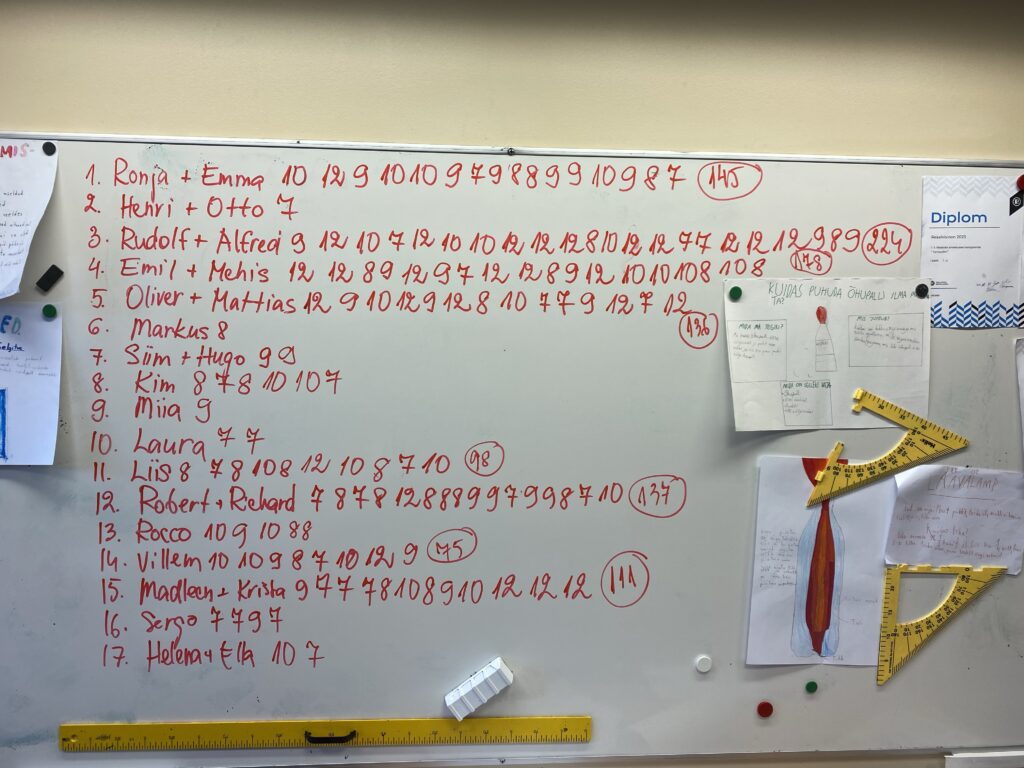 1. Ronja + Emma 10 12 9 10 10 9 7 9 8 8 9 9 10 9 8 7 145
2. Henri + Otto 7
3. Rudolf + Alfred 9 12 10 7 12 10 10 12 12 12 8 10 12 12 7 7 12 12 12 9 8 9 224
4. Emil + Mehis 12 12 8 9 12 9 7 12 12 8 9 12 10 10 10 8 10 8 178
5. Oliver + Mattias 12 9 10 12 9 12 8 10 7 7 9 12 7 12
136
6. Markus 8
7. Siim + Hugo 9 9
8. Kim 8 7 8 10 10 7
9. Miia 9
10. Laura 7 7
11. Liis 8 7 8 10 8 12 10 8 7 10 98
12. Robert + Richard 7 8 7 8 12 8 8 8 9 9 7 9 9 8 7 10 137
13. Rocco 10 9 10 8 8
14. Villem 10 10 9 8 7 10 12 9 75
15. Madleen + Krista 9 7 7 7 8 10 8 9 10 12 12 12 111
16. Sergo 7 7 9 7
17. Helena + Ella 10 7
Diplom
KUIDAS PUHUDA ÕHUPALLI ILMA
LAAVALAMP